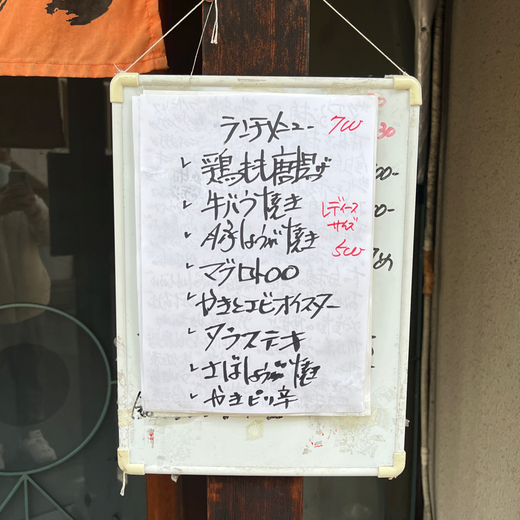 ランチメニュー 700
鶏もも唐揚げ
牛バラ焼き
レディース
サイズ
500
豚しょうが焼き
マグロトロ
やきとエビオイスター
タラステーキ
さばしょうが焼
やきピリ辛